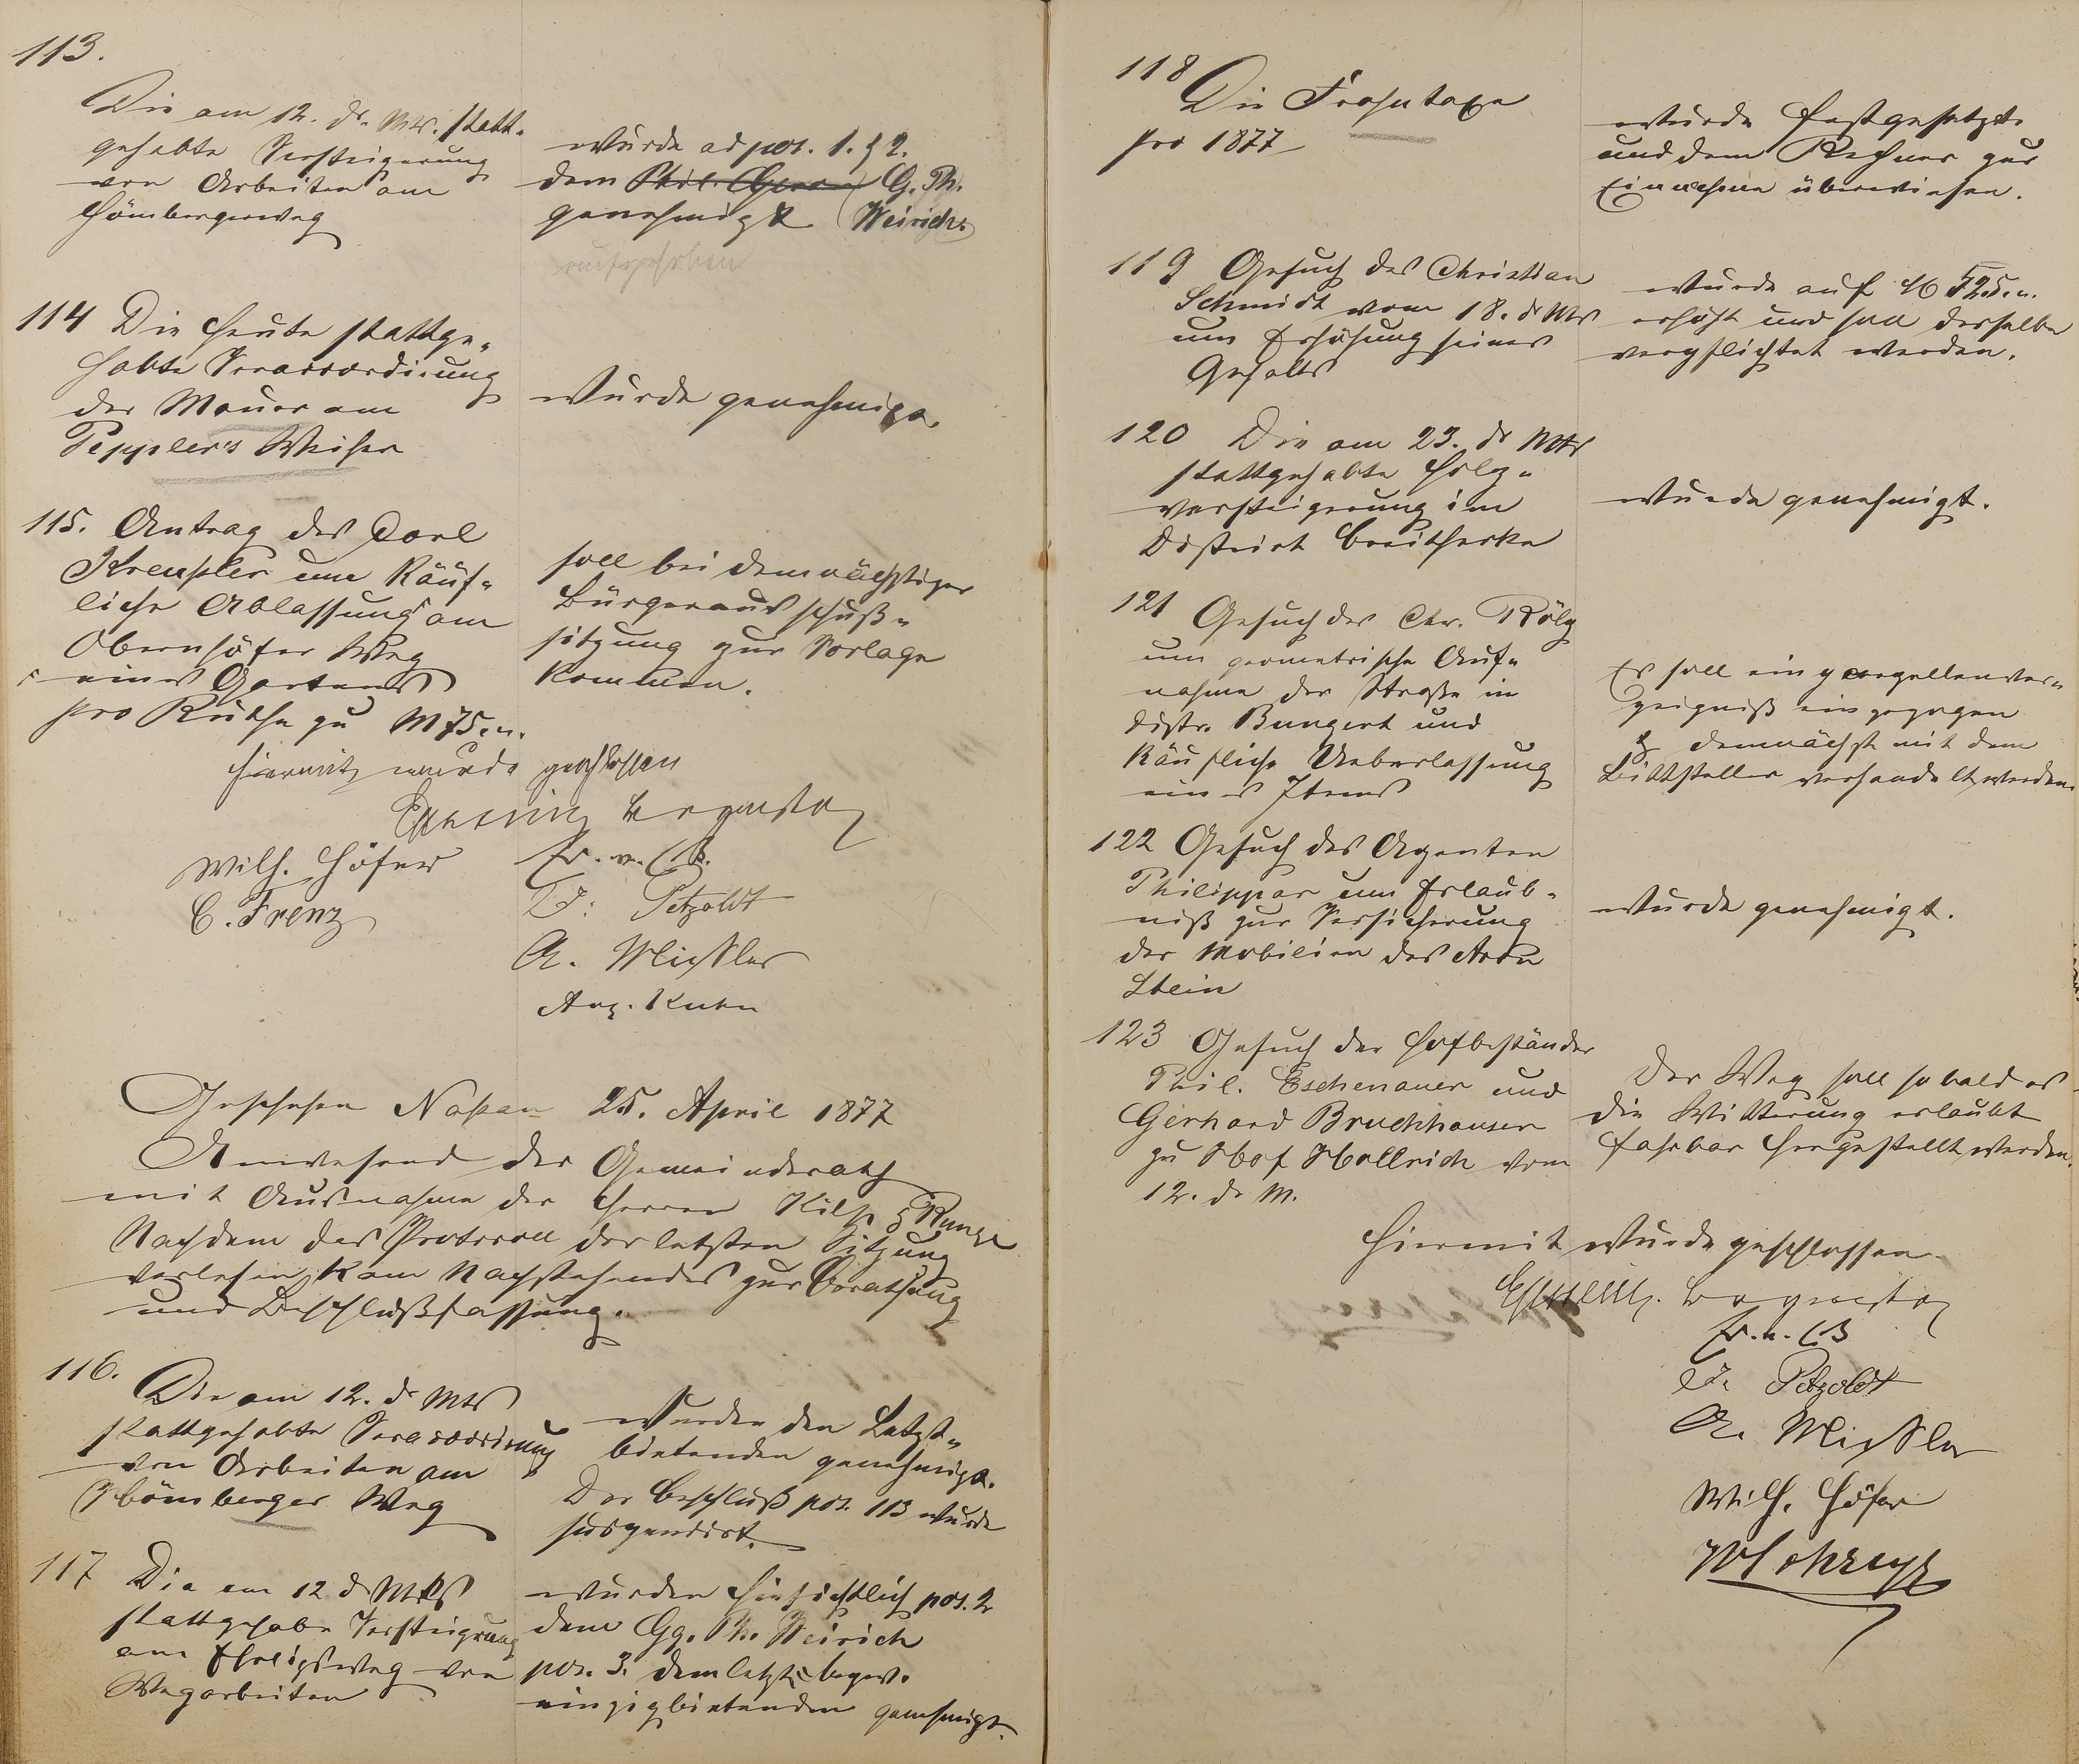 113.
Die am 12. ds. Mts. statt-
gehabte Versteigerung
von Arbeiten am
Hömbergerweg
wurde ad pos. 1. & 2.
dem Phil. G. Ph.
genehmigt. (Weirich)
aufgehoben
114 Die heute stattge-
habte Veraccordirung
der Mauer am
Peppler's Weiher
wurde genehmigt.
115. Antrag des Carl
Krempler um käuf-
liche Ablassung am
Obernhöfer Weg
eines Gartens
pro Ruthe zu M 75.
soll bei demnächstiger
Bürgerausschuß-
sitzung zur Vorlage
kommen.
hiermit wurde geschlossen
Bgmstr
Wilh. Höfer
C. Frenz
Petzoldt
A. Mißler
Aug. Kuhn
Geschehen Naßau 25. April 1877
Anwesend der Gemeinderath
mit Ausnahme der Herren Hilp & Runge
Nachdem das Protocoll der letzten Sitzung
verlesen, kam Nachstehendes zur Berathung
und Beschlußfassung.
116.
Die am 12. ds Mts
stattgehabte Veraccordirung
von Arbeiten am
Hömberger Weg
wurden den Letzt-
bietenden genehmigt.
Der Beschluß pos. 113 wurde
suspendirt.
117 Die am 12 ds Mts
stattgehabe Versteigrung
am weg von
Wegarbeiten
wurden hinsichtlich pos. 2
dem Gg. Ph. Weirich
pos. 3. dem letzt bezw.
einzigbietenden genehmigt.
118
Die Frohntaxe
pro 1877
wurde festgesetzt
und dem Rechner zur
Einnahme überwiesen.
119 Gesuch des Christian
Schmidt vom 18. ds Mts
um Erhöhung seines
Gehalts
wurde auf M 525.
erhöht und soll derselbe
verpflichtet werden.
120 Die am 23. ds Mts
stattgehabte Holz-
versteigerung im
District Breitheske
wurde genehmigt.
121 Gesuch des Chr. Rölz
um geometrische Auf-
nahme der Straße in
Distr. Bungert und
käufliche Ueberlassung
eines Items
Es soll ein Parzellenver-
zeigniß eingezogen
& demnächst mit dem
Bittsteller verhandelt werden.
122 Gesuch des Agenten
Philippar um Erlaub-
niß zur Versicherung
der Mobilien des Aron
Stein
wurde genehmigt.
123 Gesuch der Hofbeständer
Phil. Eschenauer und
Gerhard Bruchhausen
zu Hof Hollrich vom
12. ds M.
Der Weg soll sobald es
die Witterung erlaubt
fahrbar hergestellt werden.
Hiermit wurde geschlossen
Bgmstr
Petzoldt
A. Mißler
Wilh. Höfer